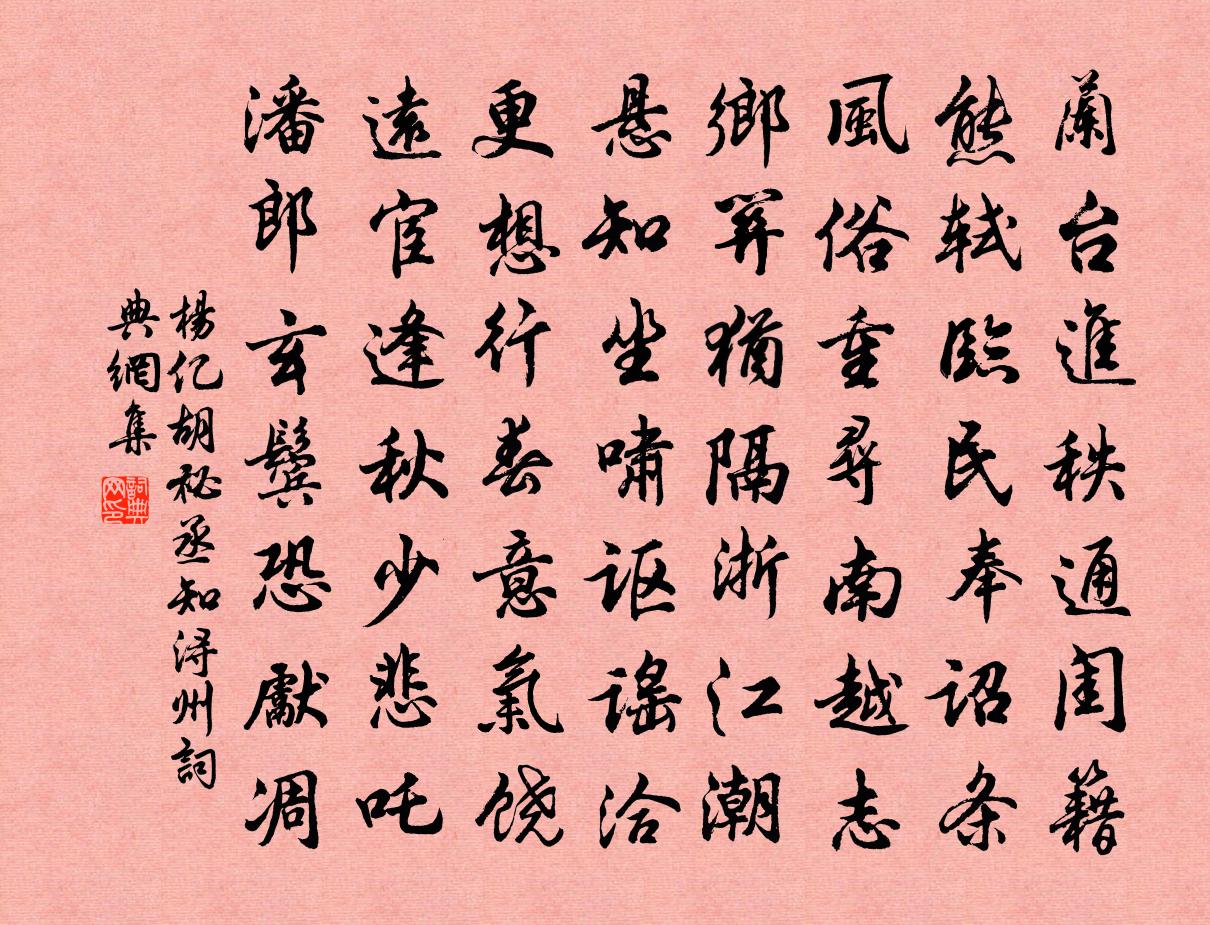 蘭台進秩通閨籍
熊轼臨民奉诏条
風俗重尋南越志
鄉關猶隔浙江潮
悬知坐啸讴謠洽
更想行春意氣饶
遠宦逢秋少悲吒
潘郎玄鬢恐獻凋
楊亿胡祕丞知浔州詞
典網集
詞典网印